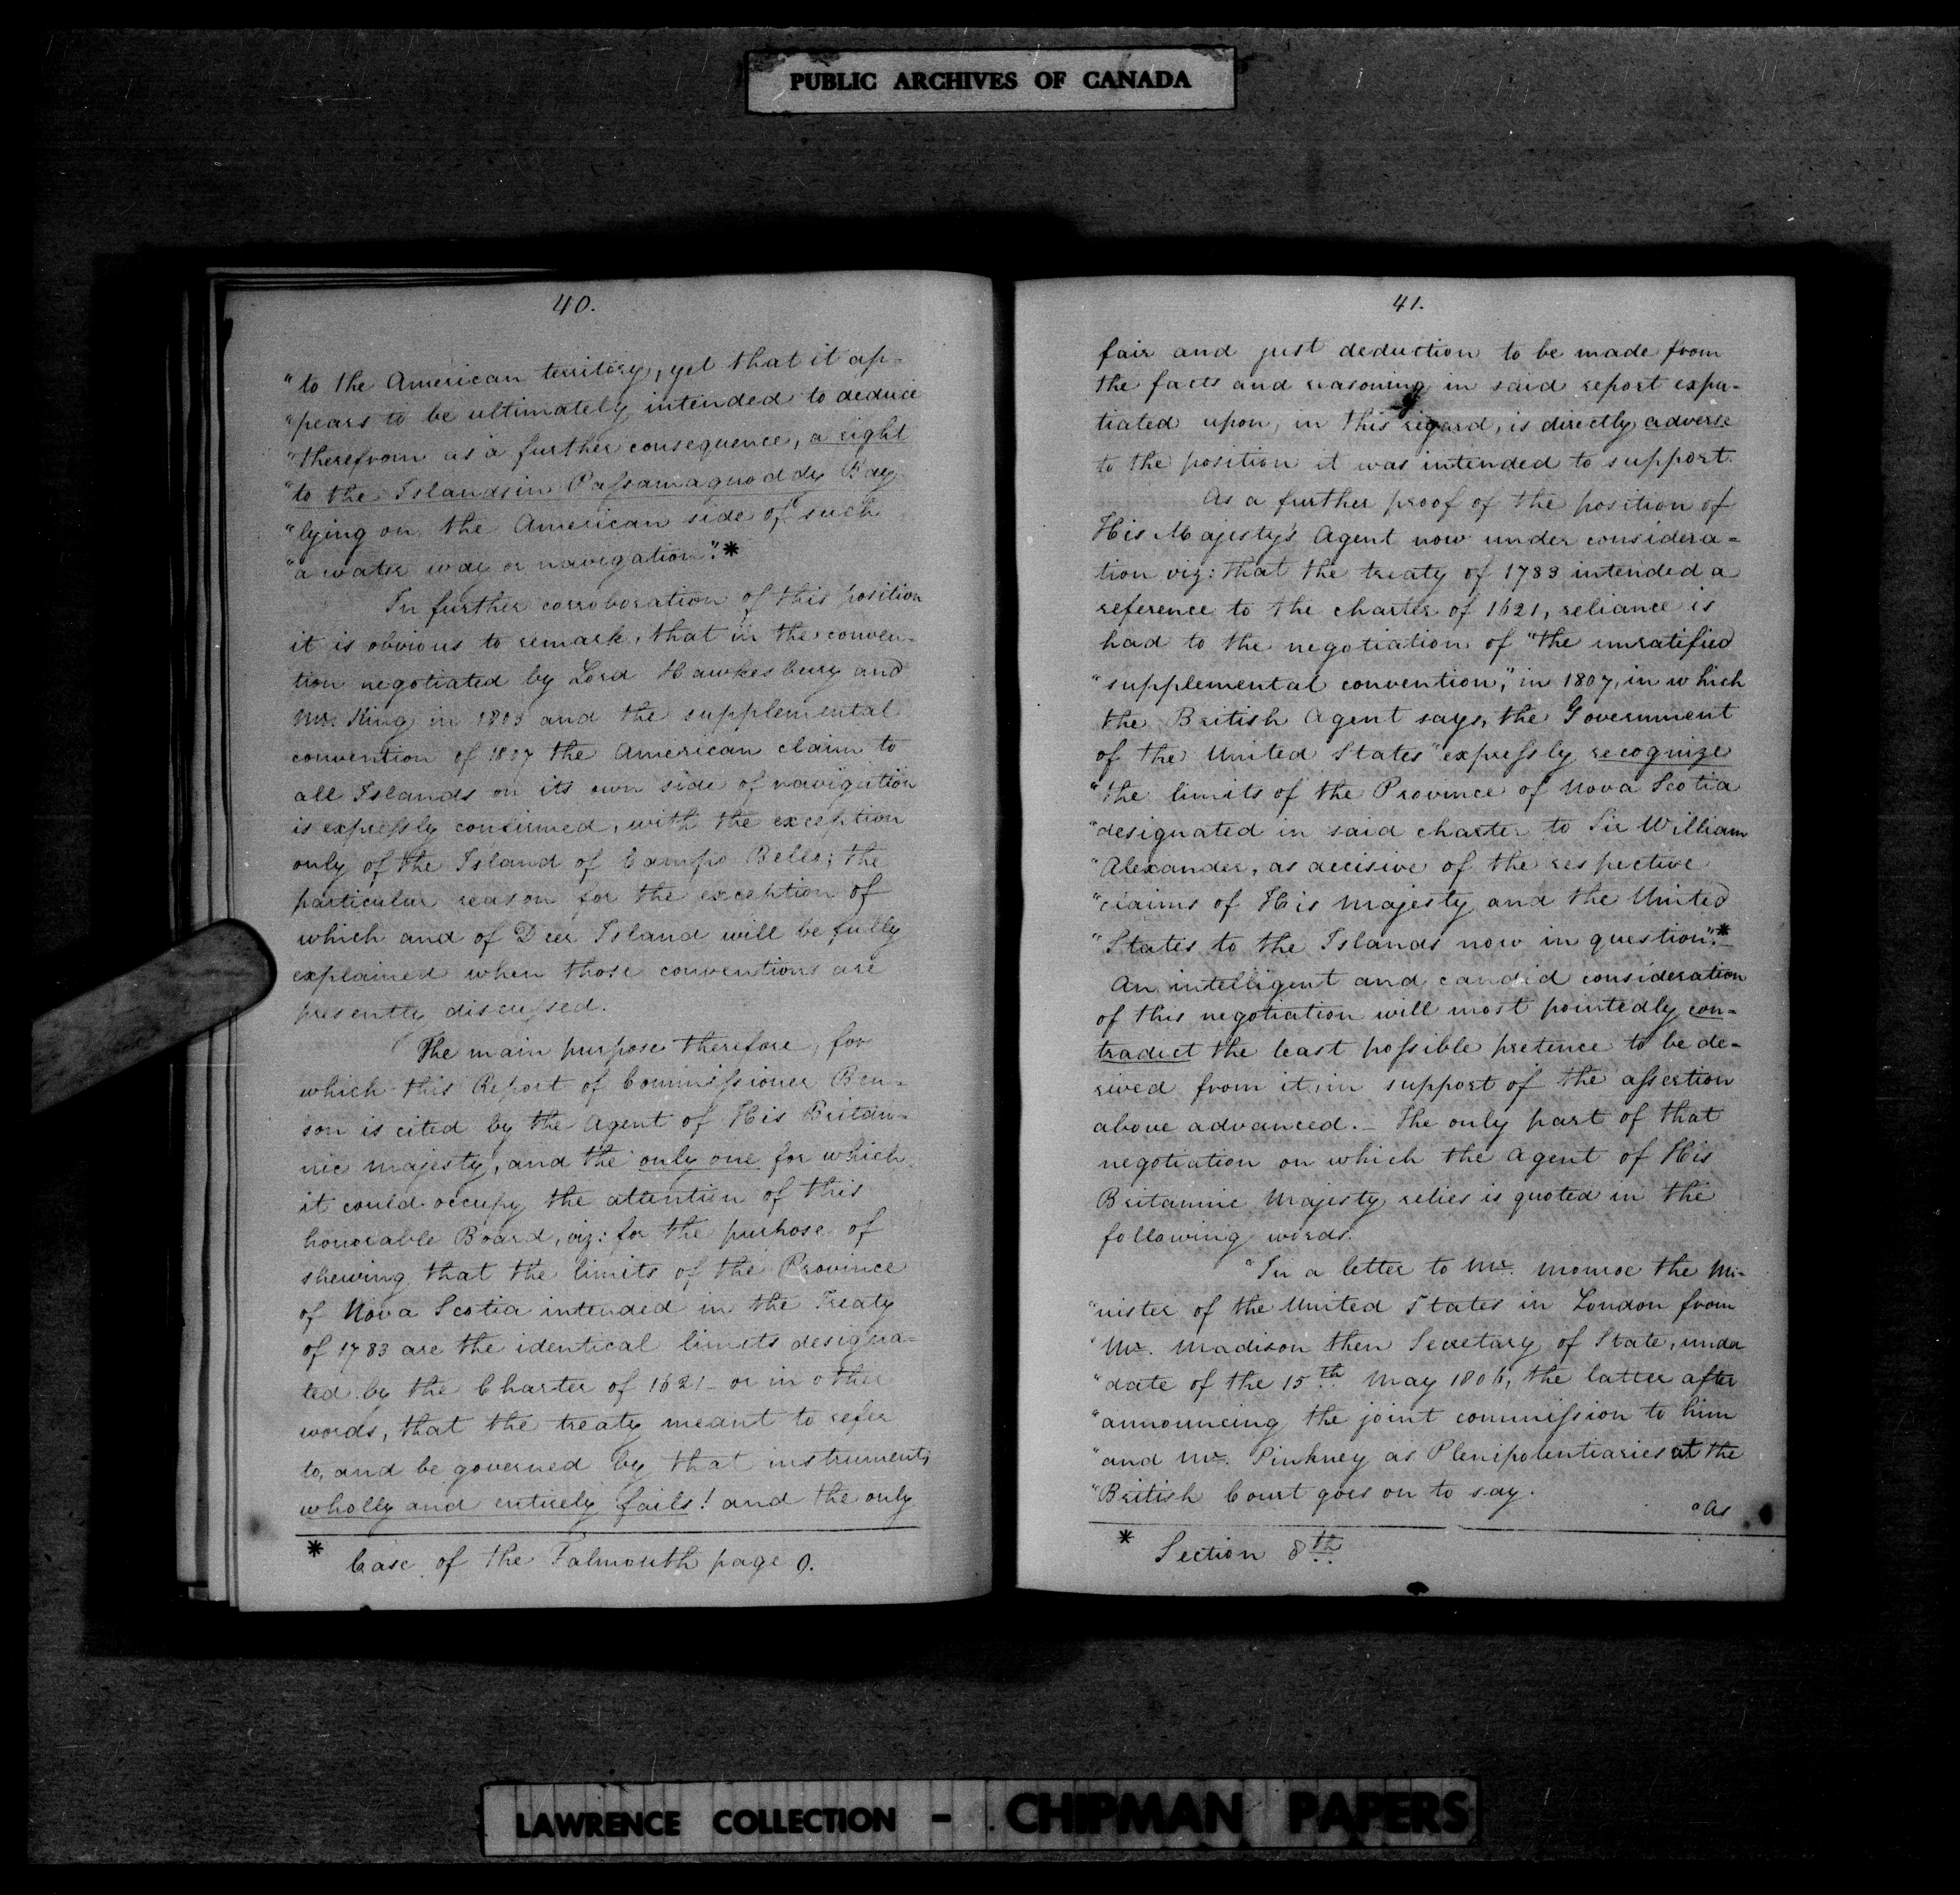 PUBLIC ARCHIVES OF CANADA
40.
"to the American territory, yet that it ap-
"pears to be ultimately intended to deduce
"therefrom as a further consequence, a right
"to the Islands in Passamaquoddy Bay
"lying on the American side of such
"a water way or navigation".*
In further corroboration of this position
it is obvious to remark, that in the conven-
tion negotiated by Lord Hawkesbury and
Mr. King in 1803 and the supplemental
convention of 1807 the American claim to
all Islands on its own side of navigation
is expressly confirmed, with the exception
only of the Island of Campo Bello; the
particular reason for the exception of
which and of Deer Island will be fully
explained when those conventions are
presently discussed.
The main purpose therefore, for
which this Report of Commissioner Ben-
son is cited by the Agent of His Britan-
nic Majesty, and the only one for which
it could occupy the attention of this
honorable Board, viz: for the purpose of
shewing that the limits of the Province
of Nova Scotia intended in the Treaty
of 1783 are the identical limits designa-
ted by the Charter of 1621 - or in other
words, that the treaty meant to refer
to, and be governed by that instrument,
wholly and entirely fails! and the only
* Case of the Falmouth page 9.
41.
fair and just deduction to be made from
the facts and reasoning in said report expa-
tiated upon, in this regard, is directly adverse
to the position it was intended to support.
As a further proof of the position of
His Majesty's Agent now under considera-
tion viz: that the treaty of 1783 intended a
reference to the charter of 1621, reliance is
had to the negotiation of "the unratified
"supplemental convention," in 1807, in which
the British Agent says, the Government
of the United States "expressly recognize
"the limits of the Province of Nova Scotia
"designated in said charter to Sir William
"Alexander, as decisive of the respective
"claims of His Majesty and the United
"States to the Islands now in question".*
An intelligent and candid consideration
of this negotiation will most pointedly con-
tradict the least possible pretence to be de-
rived from it in support of the assertion
above advanced. - The only part of that
negotiation on which the Agent of His
Britannic Majesty relies is quoted in the
following words.
"In a letter to Mr. Monroe the Mi-
"nister of the United States in London from
"Mr. Madison then Secretary of State, under
"date of the 15th May 1806, the latter after
"announcing the joint commission to him
"and Mr. Pinkney as Plenipotentiaries at the
"British Court goes on to say.
"As
* Section 8th
LAWRENCE COLLECTION - CHIPMAN PAPERS